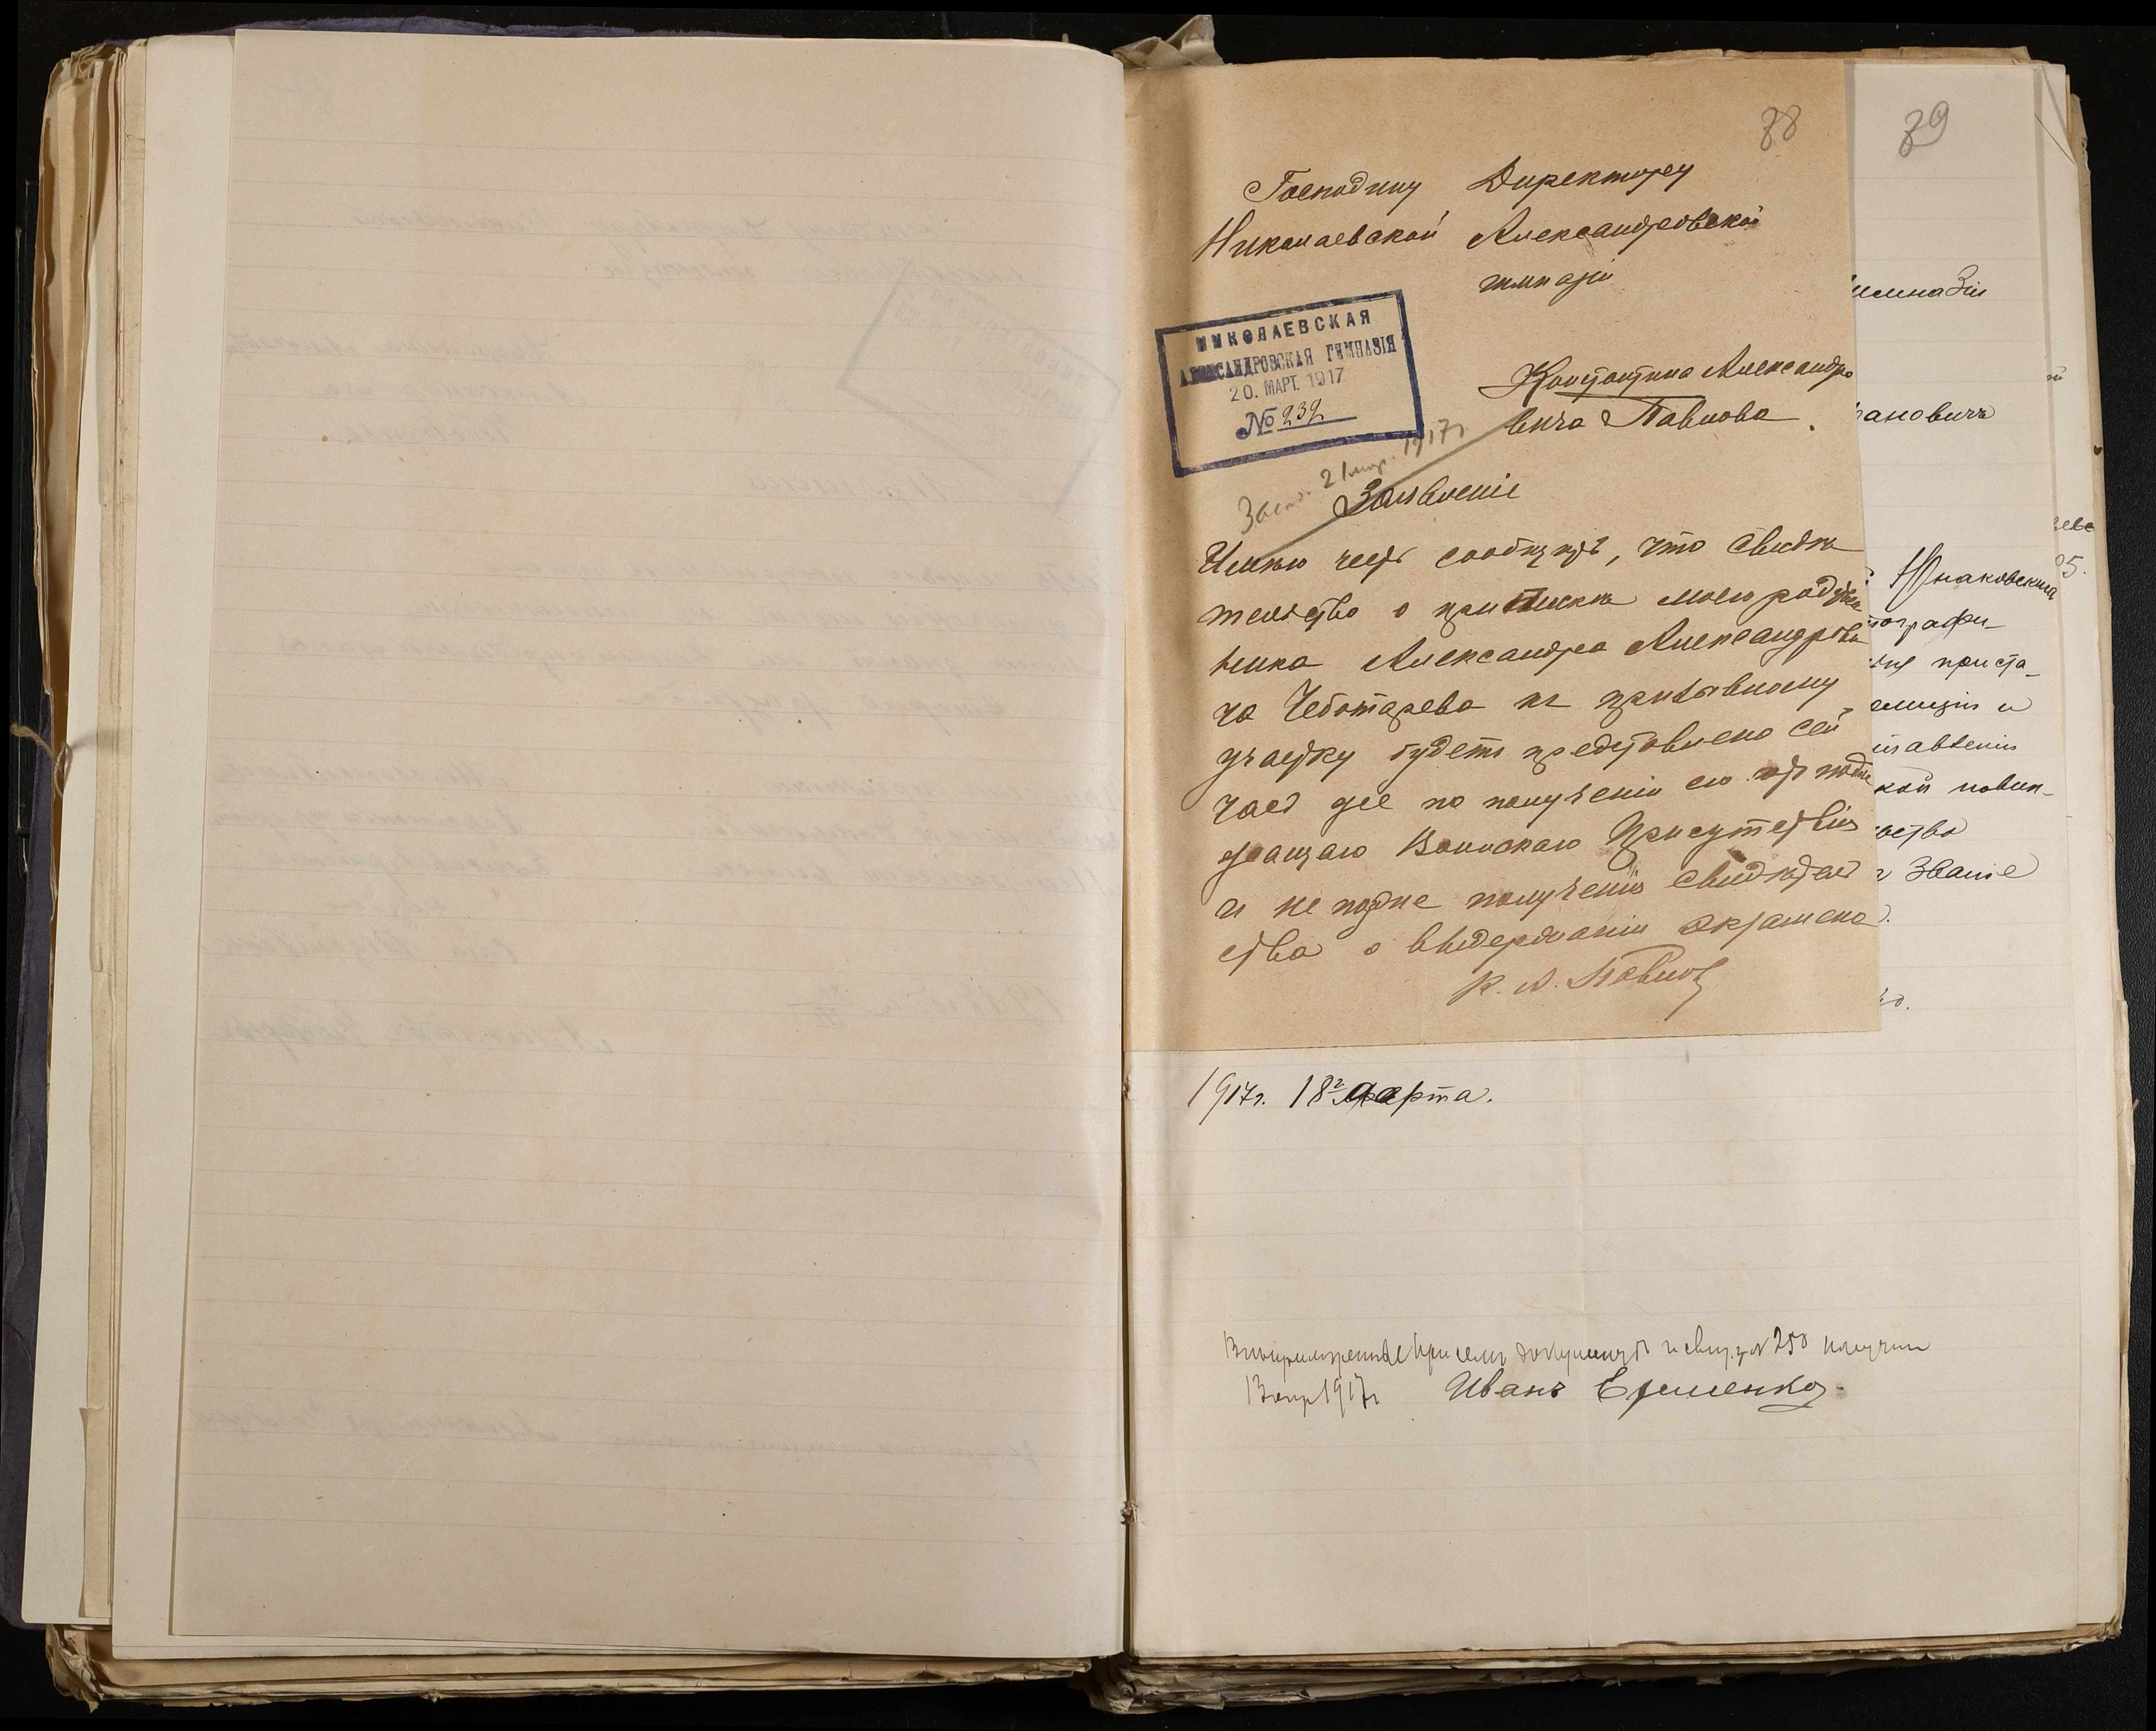 38
Господину Директору
Николаевской Александровской
гимназіи
НИКОЛАЕВСКАЯ
АЛЕКСАНДРОВСКАЯ ГИМНАЗІЯ
20. МАРТ. 1917
№ 232
Константина Александро
вича Павлова.
21 мар. 1917 г
Заявленіе
Имѣю честь сообщить, что свидѣ
тельство о припискѣ моего родствен
ника Александра Александрови
ча Чеботарева къ призывному
участку будетъ представлено сей
часъ же по полученіи его отъ подле
жащаго Воинскаго Присутствія
и не позже полученія свидѣтель
ства о выдержаніи экзамена.
К. А. Павловъ
39
имназіи
ановичъ
Юнаковскимъ
тографи-
приста-
и
кой повин-
званіе
1917 г. 18го марта.
документы и свид. за № 250 получилъ
13 апр 1917 г Иванъ Еременко